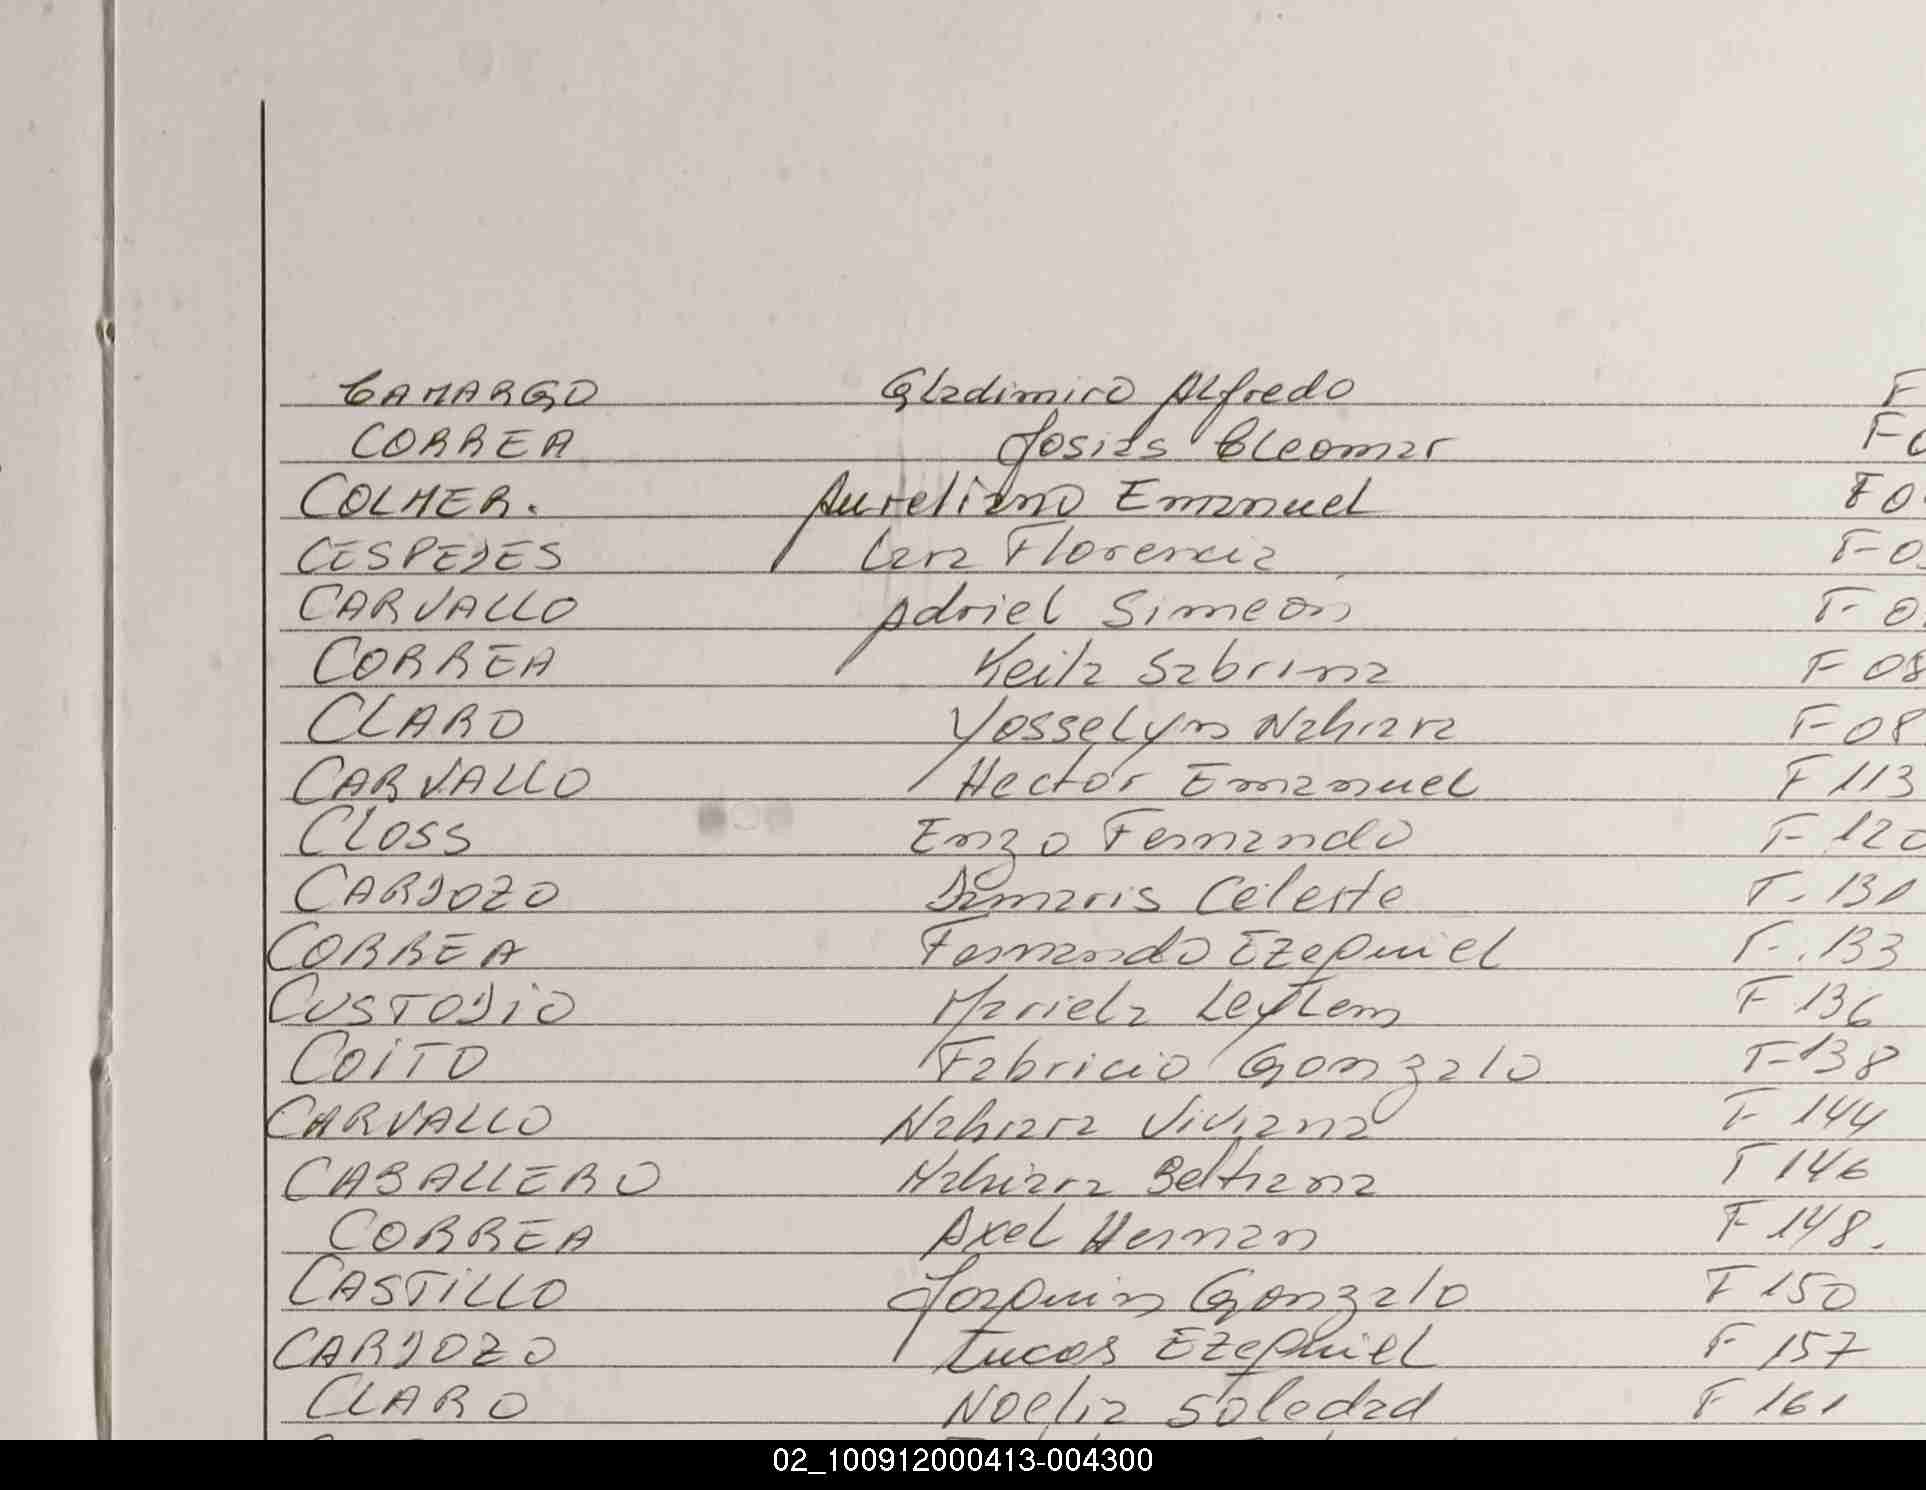 CAMARGO Gladimiro Alfredo F
CORREA Josias Cleomar F0
COLMER. Aureliano Emanuel F 0
CESPEDES Lara Florencia F-0
CARVALLO Adriel Simeón F-0
CORREA Keila Sabrina F 08
CLARO Yosselyn Nahiara F-08
CARVALLO Hector Emanuel F 113
CLOSS Enzo Fernando F-120
CARDOZO Damaris Celeste F. 131
CORREA Fernando Ezequiel F-.133
CUSTODIO Mariela Leylem F 136
COITO Fabricio Gonzalo F-138
CARVALLO Nahiara Viviana F 144
CABALLERO Nahiara Beltrana F 146
CORREA Axel Hernan F 148.
CASTILLO Joaquin Gonzalo F 150
CARDOZO Lucas Ezequiel F 157
CLARO Noelia Soledad F 161
02_100912000413-004300